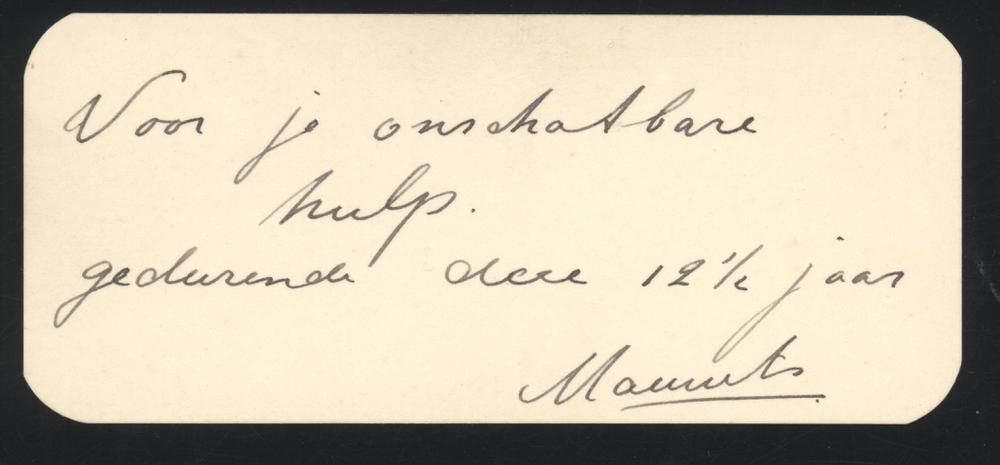 Voor je onschatbare
hulp.
gedurende deze 12½ jaar
Maurits